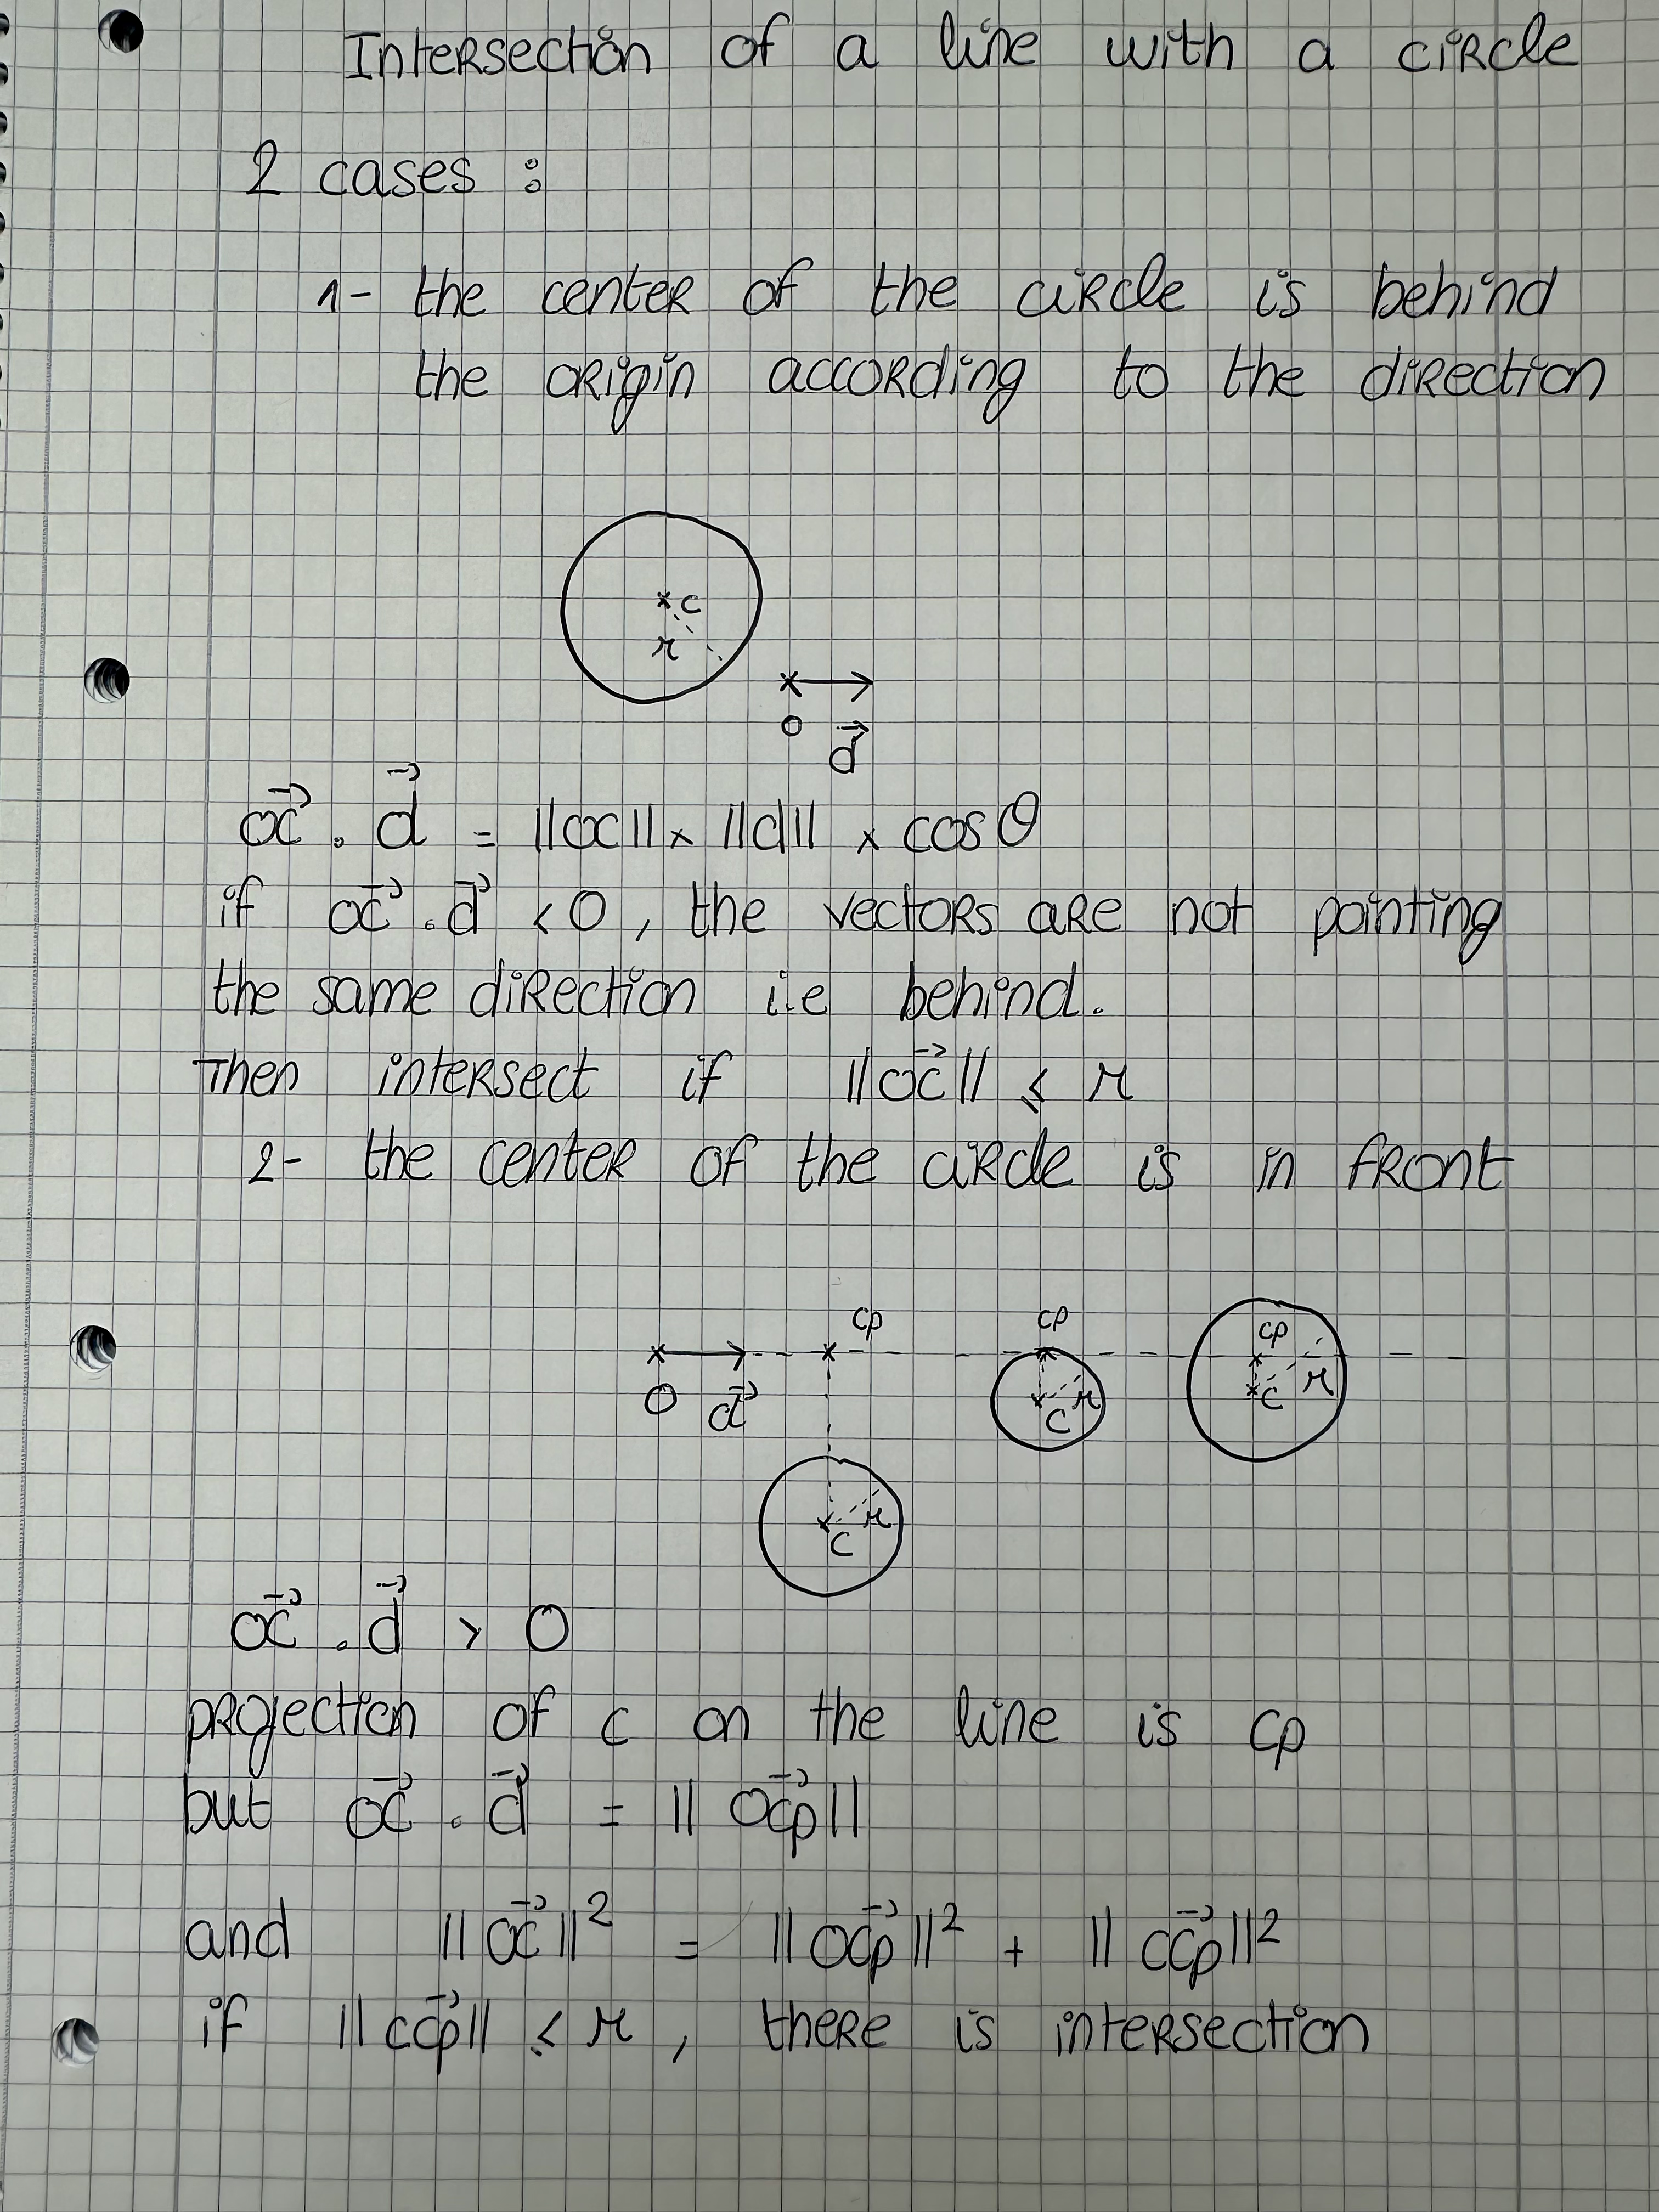 Intersection of a line with a circle
2 cases :
1- the center of the circle is behind
the origin according to the direction
x c
r
x
o
d⃗
oc⃗ . d⃗ = ||oc|| x ||d|| x cos θ
if oc⃗ . d⃗ < 0, the vectors are not pointing
the same direction i.e behind.
Then intersect if ||oc⃗|| ≤ r
2- the center of the circle is in front
cp cp cp
O d⃗ c r c r
c r
oc⃗ . d⃗ > 0
projection of c on the line is cp
but oc⃗ . d⃗ = ||ocp⃗||
and ||oc⃗||² = ||ocp⃗||² + ||ccp⃗||²
if ||ccp⃗|| ≤ r, there is intersection